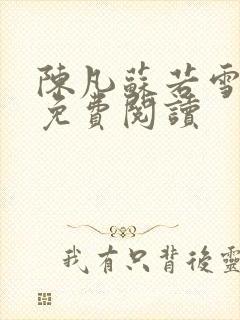 陳凡蘇若雪
免費閱讀
我有只背後靈